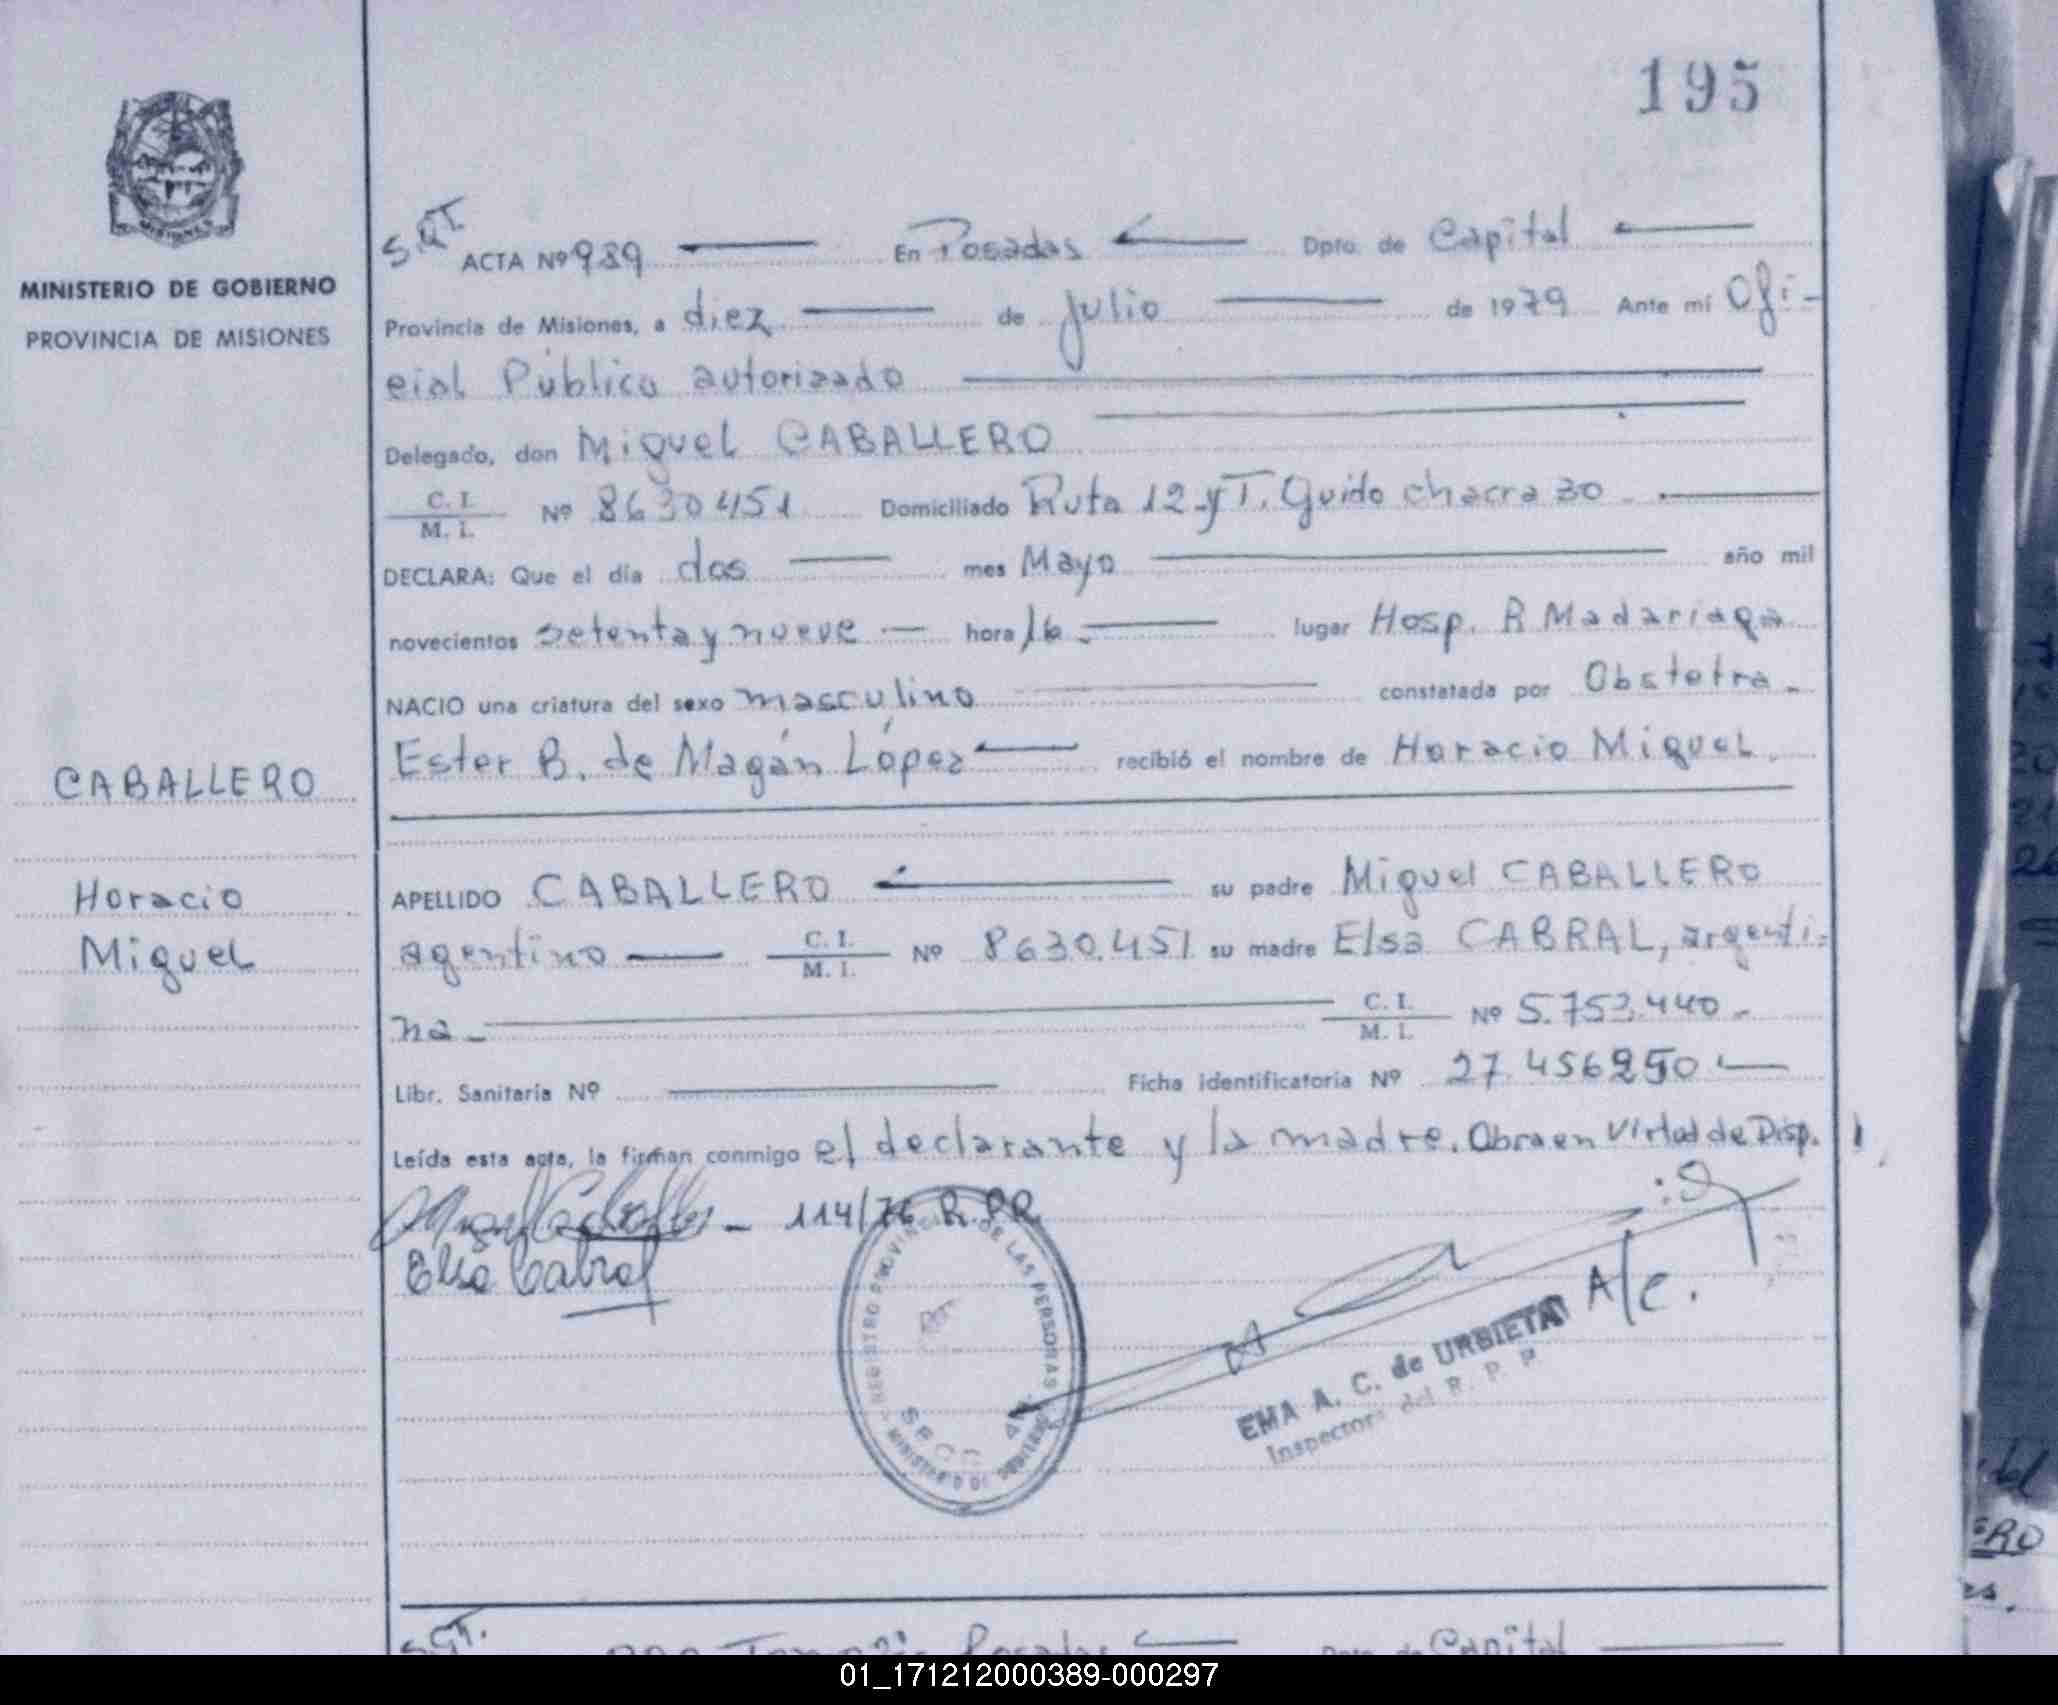 195
MISIONES
MINISTERIO DE GOBIERNO
PROVINCIA DE MISIONES
CABALLERO
Horacio
Miguel
S.G.T. ACTA Nº 989 En Posadas Dpto. de Capital
Provincia de Misiones, a diez de julio de 1979 Ante mí Ofi-
cial Público autorizado
Delegado, don Miguel CABALLERO
C. I.
M. I. Nº 8630451 Domiciliado Ruta 12-y T. Guido chacra 30
DECLARA: Que el día dos mes Mayo año mil
novecientos setenta y nueve hora 16. lugar Hosp. R Madariaga
NACIO una criatura del sexo masculino constatada por Obstetra.
Ester B. de Magán López recibió el nombre de Horacio Miguel.
APELLIDO CABALLERO su padre Miguel CABALLERO
agentino C. I.
M. I. Nº 8630.451 su madre Elsa CABRAL, argenti-
na C. I.
M. I. Nº 5.753.440.-
Libr. Sanitaria Nº Ficha identificatoria Nº 27.456250
Leída esta acta, la firman conmigo el declarante y la madre. Obra en Virtud de Disp.
Miguel Caballero - 114/76 R.P.P.
Elsa Cabral
REGISTRO PROVINCIAL DE LAS PERSONAS
A/c.
EMA A. C. de URBIETA
Inspectora del R. P. P.
S.G.T. Posadas Dpto. de Capital
01_171212000389-000297